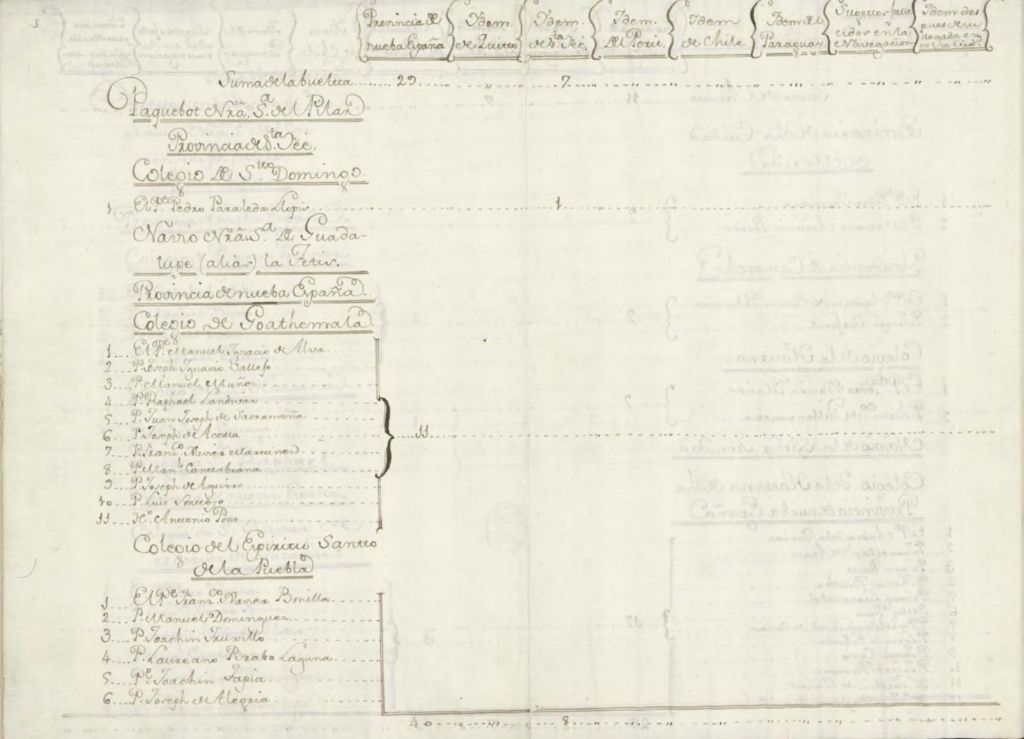 Provincia de nueba España
Idem. de Quito
Idem. de Sta Feé
Idem. del Perú.
Idem de Chile
Idem del Paraguay
Sugetos falle cidos en la Navegacion
Idem des pues de su llegada en
Suma de la buelta........ 23 7
Paquebot Nrã. Sa. del Pilar
Provincia de Sta. Feé.
Colegio de Sto Domingo.
1 El Pe Pedro Paraleda Llopis 1
Navio Nrã. Sa. de Guada-
lupe (alias) la Tetis.
Provincia de nueba España.
Colegio de Goathemala
1.... El Pe. Manuel Ignacio de Alva
2.... P. Joseph Ignacio Vallejo
3.... P. Manuel Muños
4.... P. Raphael Landivar
5.... P. Juan Joseph de Sacrameña
6.... P. Joseph de Acosta
7.... P. Franco. Xavier Martinez
8.... P. Manl. Cantabrana
9.... P. Joseph de Aguirre
10.... P. Luis
11.... Ho. Antonio Pons
11
Colegio del Espiritu Santo
de la Puebla
1.... El Pe. Franco Xavier Bonilla
2.... P. Manuel Dominguez
3.... P. Joachin Truxillo
4.... P. Laureano Brabo Laguna
5.... Pe. Joachin Tapia
6.... P. Joseph de Alegria
40 8